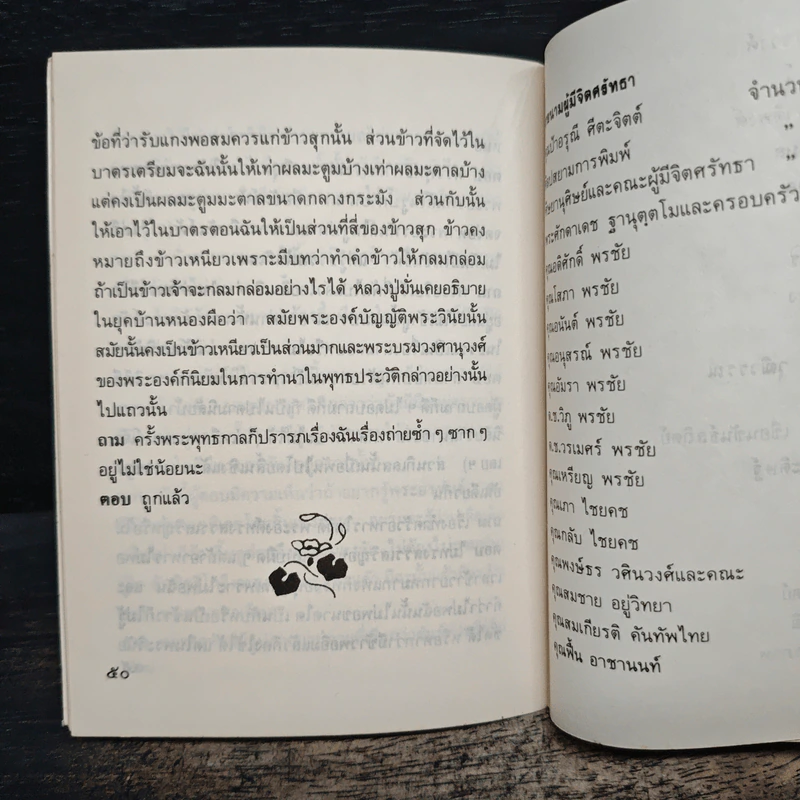 ข้อที่ว่ารับแกงพอสมควรแก่ข้าวสุกนั้น ส่วนข้าวที่จัดไว้ใน
บาตรเตรียมจะฉันนั้นให้เท่าผลมะตูมบ้างเท่าผลมะตาลบ้าง
แต่คงเป็นผลมะตูมมะตาลขนาดกลางกระมัง ส่วนกับนั้น
ให้เอาไว้ในบาตรตอนฉันให้เป็นส่วนที่สี่ของข้าวสุก ข้าวคง
หมายถึงข้าวเหนียวเพราะมีบทว่าทำคำข้าวให้กลมกล่อม
ถ้าเป็นข้าวเจ้าจะกลมกล่อมอย่างไรได้ หลวงปู่มั่นเคยอธิบาย
ในยุคบ้านหนองผือว่า สมัยพระองค์บัญญัติพระวินัยนั้น
สมัยนั้นคงเป็นข้าวเหนียวเป็นส่วนมากและพระบรมวงศานุวงศ์
ของพระองค์ก็นิยมในการทำนาในพุทธประวัติกล่าวอย่างนั้น
ไปแถวนั้น
ถาม ครั้งพระพุทธกาลก็ปรารภเรื่องฉันเรื่องถ่ายซ้ำ ๆ ซาก ๆ
อยู่ไม่ใช่น้อยนะ
ตอบ ถูกแล้ว
๕๐
นามผู้มีจิตศรัทธา
ป้าอรุณี ศีตะจิตต์ จำนวน
สยามการพิมพ์ "
ศิษย์และคณะผู้มีจิตศรัทธา "
พระศักดาเดช ฐานุตฺตโมและครอบครัว
คุณอดิศักดิ์ พรชัย
คุณโสภา พรชัย
คุณอนันต์ พรชัย
คุณอนุสรณ์ พรชัย
คุณอัมรา พรชัย
ด.ช.วิภู พรชัย
ด.ช.วรเมศร์ พรชัย
คุณเหรียญ พรชัย
คุณเภา ไชยคช
คุณกลับ ไชยคช
คุณพงษ์ธร วศินวงศ์และคณะ
คุณสมชาย อยู่วิทยา
คุณสมเกียรติ คันทัพไทย
คุณฟื้น อาชานนท์